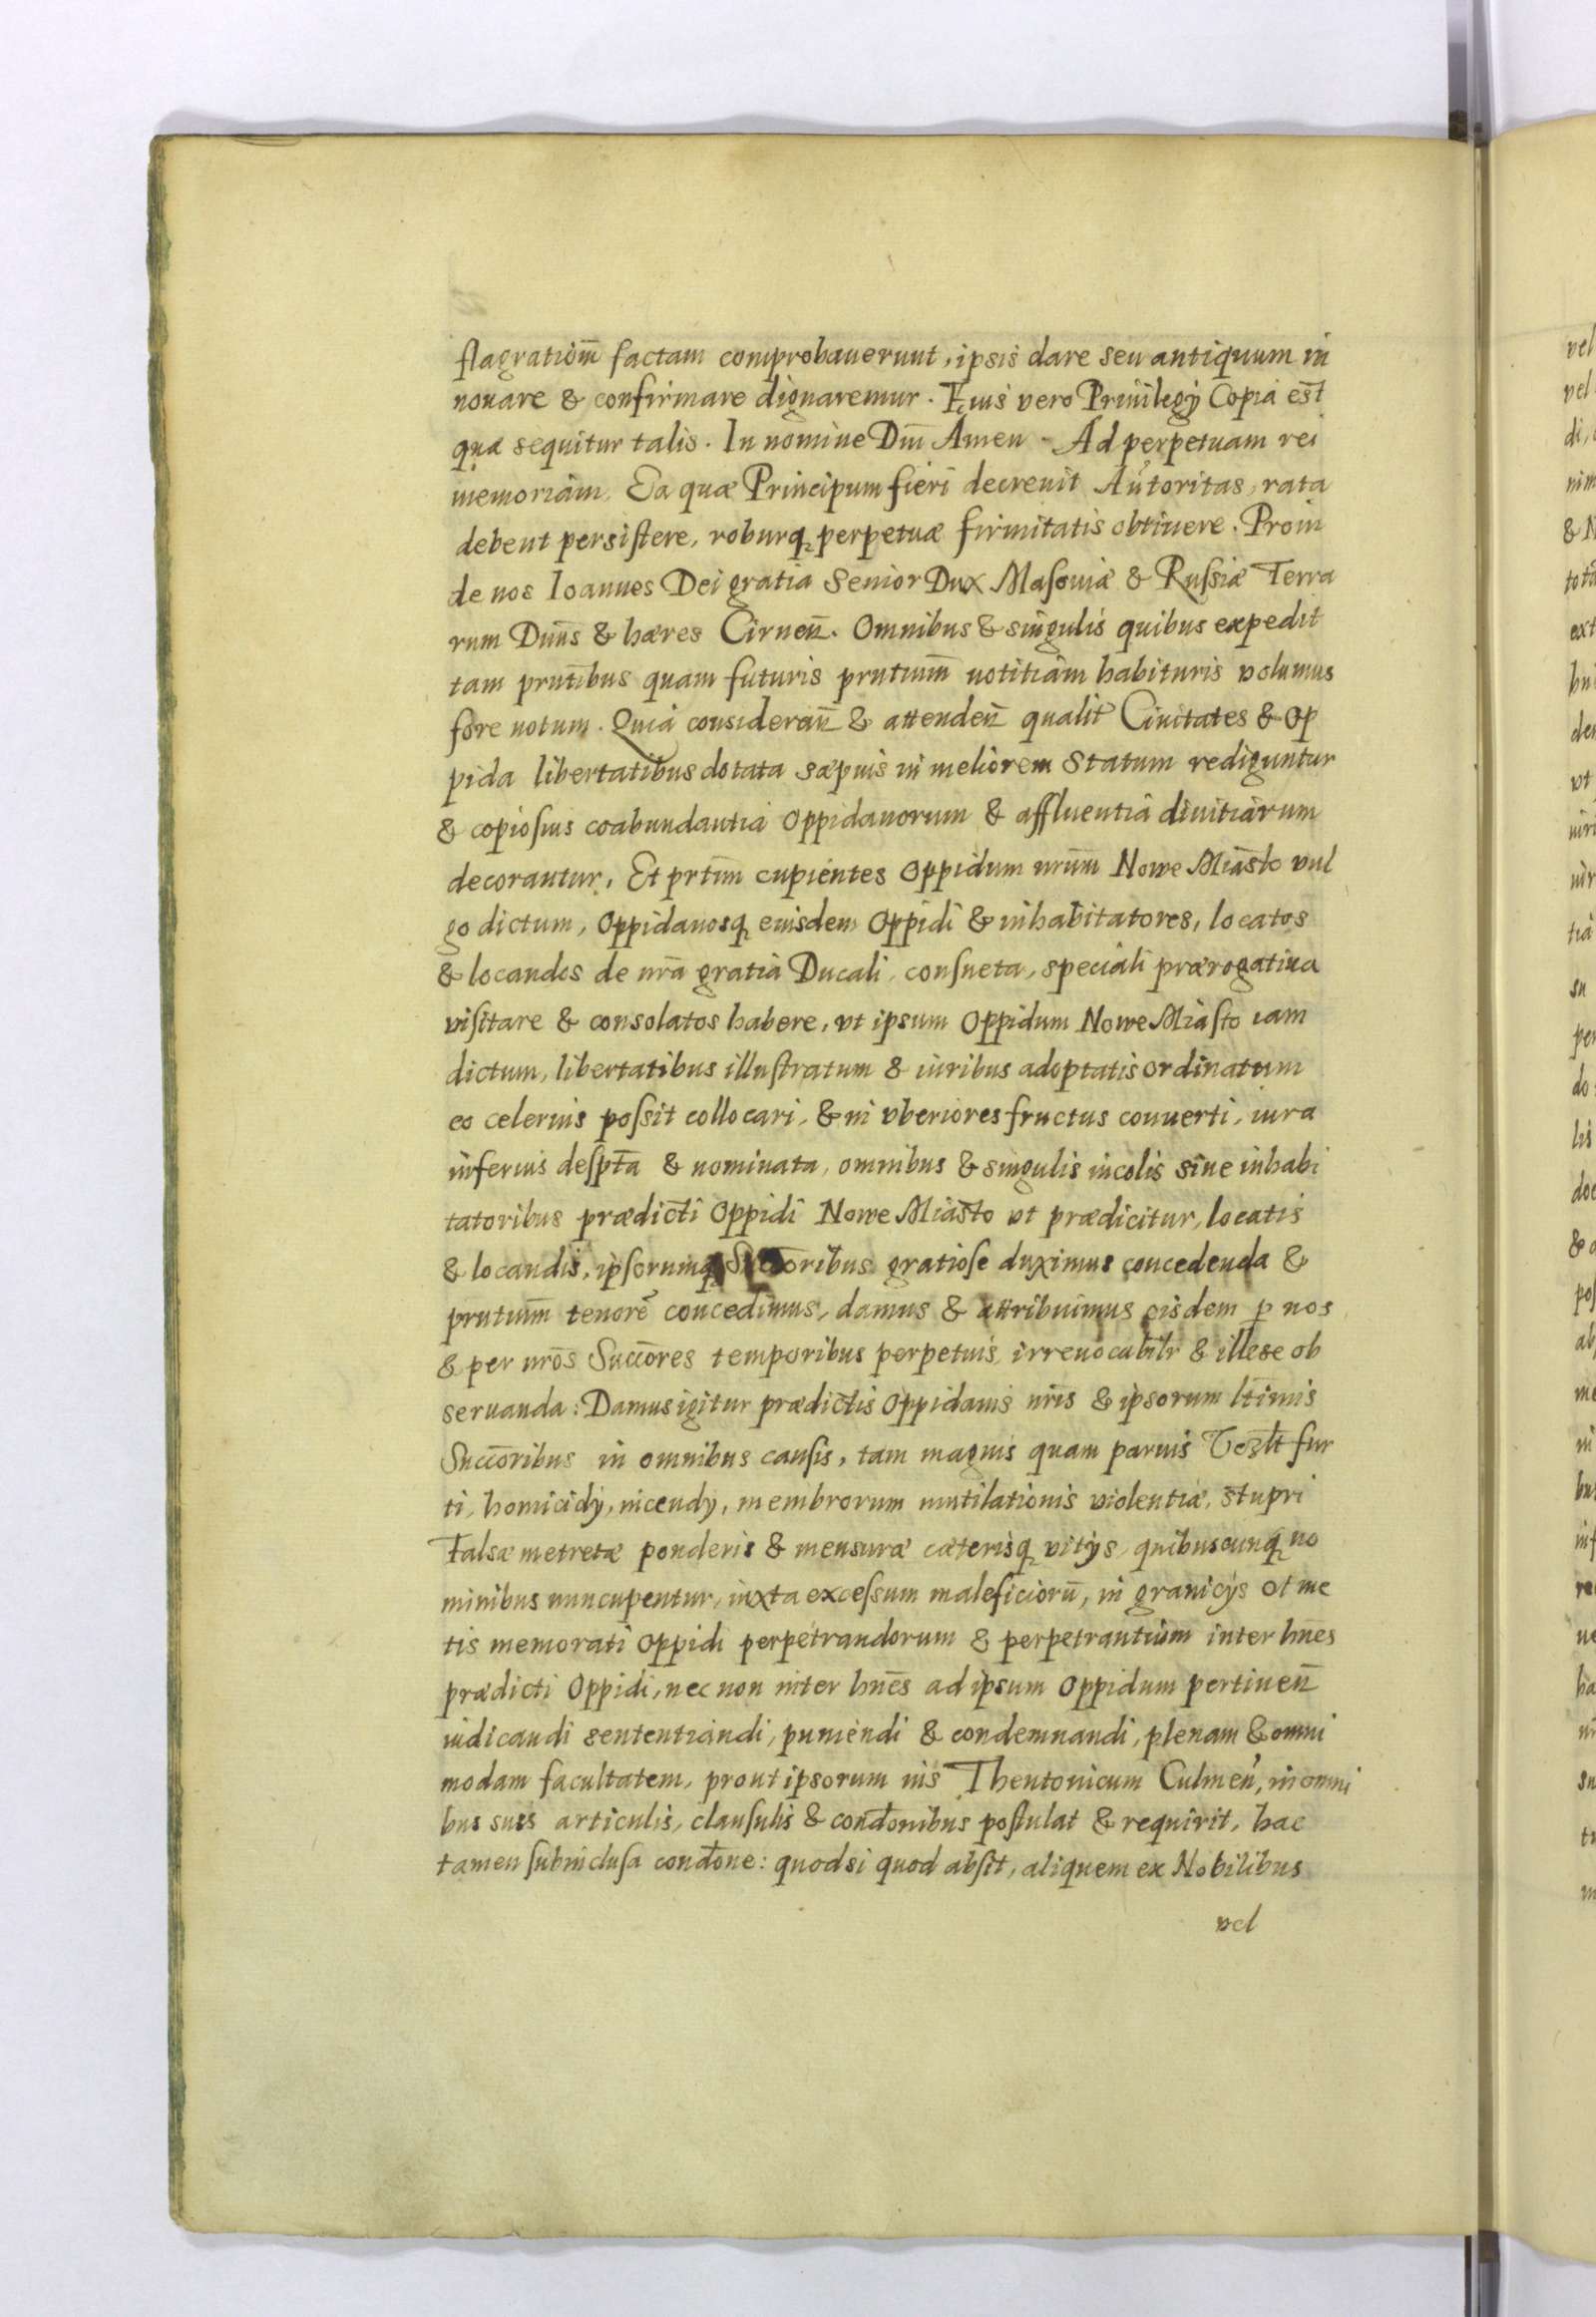 flagratiom̄ factam comprobauerunt, ipsis dare seu antiquum in
nouare & confirmare dignaremur. Eius vero Priuilegÿ Copia est
quæ sequitur talis. In nomine Dni̅ Amen - Ad perpetuam rei
memoriam. Ea quæ Principum fieri decreuit Autoritas, rata
debent persistere, roburq, perpetuæ firmitatis obtinere. Proin
de nos Ioannes Dei gratia Senior Dux Masouiæ & Russiæ Terra
rum Dnūs & hæres Cirnen̄. Omnibus & singulis quibus expedit
tam prntībus quam futuris prntium̄ notitiam habituris volumus
fore notum. Quia consideran̄ & attenden̄ qualit̄ Ciuitates & Op
pida libertatibus dotata sæpius in meliorem Statum rediguntur
& copiosius coabundantia Oppidanorum & affluentia diuitiarum
decorantur. Et prtim̄ cupientes Oppidum nrūm Nowe Miasto vul
go dictum, Oppidanosq, eiusdem Oppidi & inhabitatores, locatos
& locandos de nrā gratia Ducali, consueta, speciali prærogatiua
visitare & consolatos habere, vt ipsum Oppidum Nowe Miasto iam
dictum, libertatibus illustratum & iuribus adoptatis ordinatum
eo celerius possit collocari, & in vberiores fructus conuerti, iura
inferius despt̄a & nominata, omnibus & singulis incolis siue inhabi
tatoribus prædicti Oppidi Nowe Miasto vt prædicitur, locatis
& locandis, ipsorumq Succ̄oribus gratiose duximus concedenda &
prntium̄ tenorē concedimus, damus & attribuimus eisdem p nos
& per nrōs Succōres temporibus perpetuis, irreuocabilr̄ & illese ob
seruanda: Damus igitur prædictis Oppidanis nrīs & ipsorum ltīmis
Succōribus in omnibus causis, tam magnis quam paruis Vꝫlt̄ fur
ti, homicidÿ, incendÿ, membrorum mutilationis violentiæ, stupri
Falsæ metretæ ponderis & mensuræ cæterisq, vitÿs, quibuscunq, no
minibus nuncupentur, iuxta excessum maleficiorū, in granicÿs et me
tis memorati Oppidi perpetrandorum & perpetrantium inter hnēs
prædicti Oppidi, nec non inter hnēs ad ipsum Oppidum pertinen̄
iudicandi sententiandi, puniendi & condemnandi, plenam & omni
modam facultatem, prout ipsorum ius Theutonicum Culmen̄, in omni
bus suis articulis, clausulis & condōnibus postulat & requirit, hac
tamen subinclusa condōne: quodsi quod absit, aliquem ex Nobilibus
vel